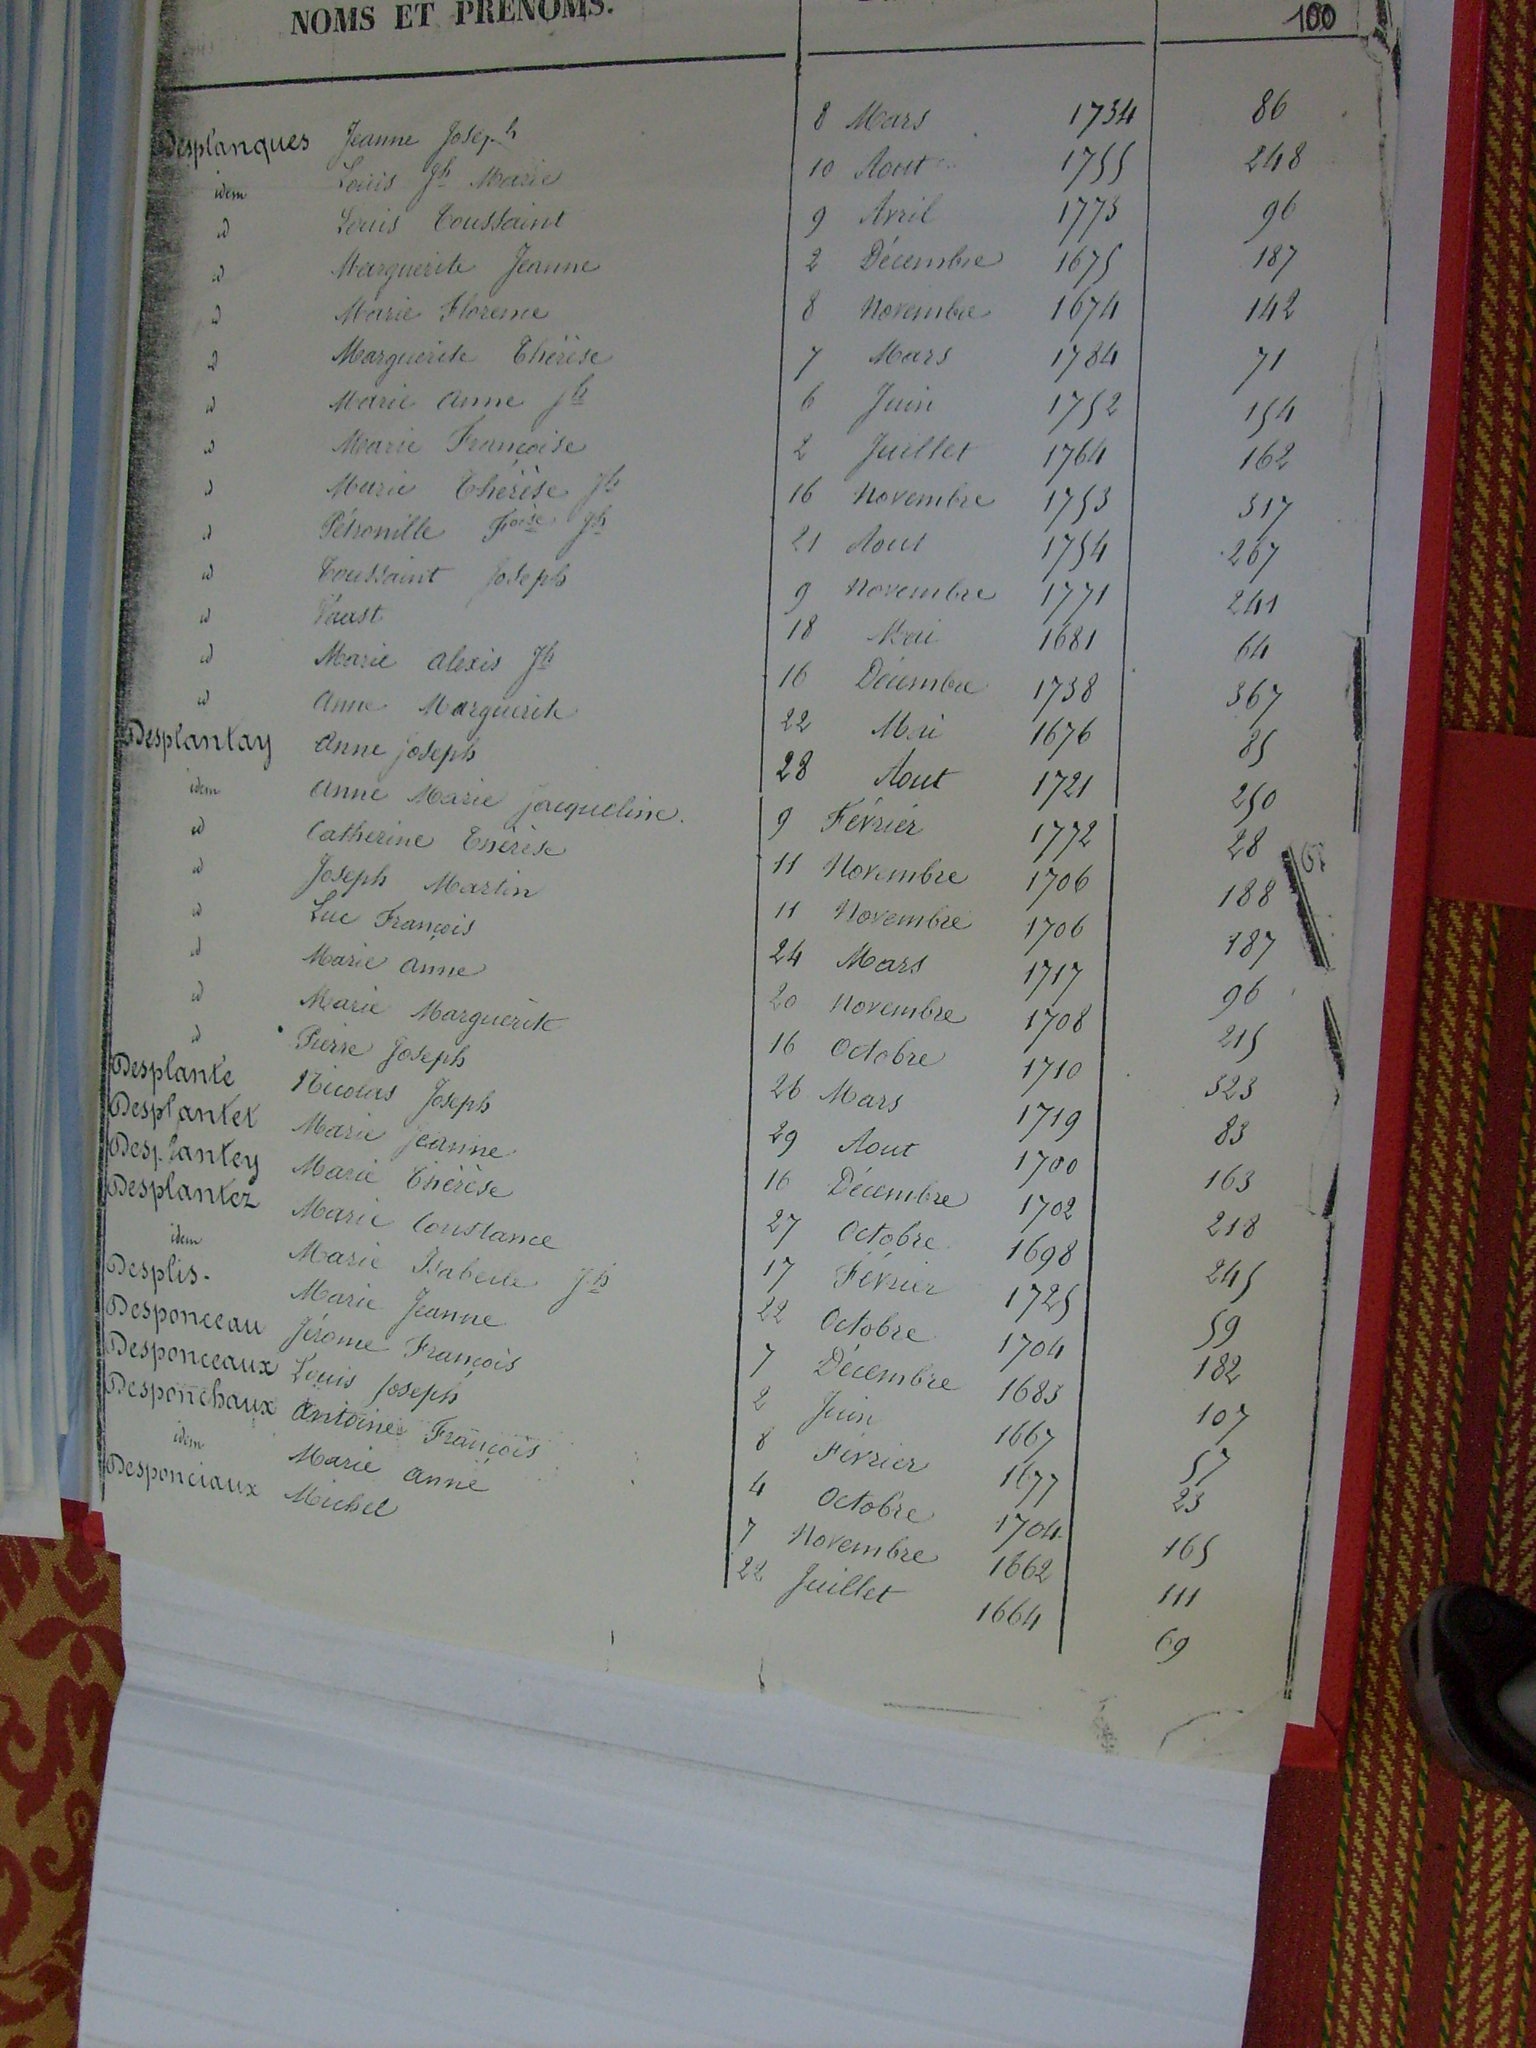 NOMS ET PRÉNOMS. 100
Desplanques Jeanne Joseph 8 Mars 1734 86
idem Louis Jh Marie 10 Aout 1755 248
id Louis Toussaint 9 Avril 1773 96
id Marguerite Jeanne 2 Décembre 1675 187
id Marie Florence 8 Novembre 1674 142
id Marguerite Thérèse 7 Mars 1784 71
id Marie Anne Jh 6 Juin 1752 154
id Marie Françoise 2 Juillet 1764 162
id Marie Thérèse Jh 16 Novembre 1753 317
id Pétronille Foise Jh 21 Aout 1754 267
id Toussaint Joseph 9 Novembre 1771 241
id Vaast 18 Mai 1681 64
id Marie Alexis Jh 16 Décembre 1738 367
id Anne Marguerite 22 Mai 1676 85
Desplantay Anne Joseph 28 Aout 1721 250
idem Anne Marie Jacqueline. 9 Février 1772 28
id Catherine Thérèse 11 Novembre 1706 188
id Joseph Martin 11 Novembre 1706 187
id Luc François 24 Mars 1717 96
id Marie Anne 20 Novembre 1708 215
id Marie Marguerite 16 Octobre 1710 323
id Pierre Joseph 26 Mars 1719 83
Desplanté Nicolas Joseph 29 Aout 1700 163
Desplantet Marie Jeanne 16 Décembre 1702 218
Desplantey Marie Thérèse 27 Octobre 1698 245
Desplantez Marie Constance 17 Février 1725 59
idem Marie Isabelle Jh 22 Octobre 1704 182
Desplis. Marie Jeanne 7 Décembre 1683 107
Desponceau Jérome François 2 Juin 1667 57
Desponceaux Louis Joseph 8 Février 1677 23
Desponchaux Antoine François 4 Octobre 1704 165
idem Marie Anne 7 Novembre 1662 111
Desponciaux Michel 22 Juillet 1664 69